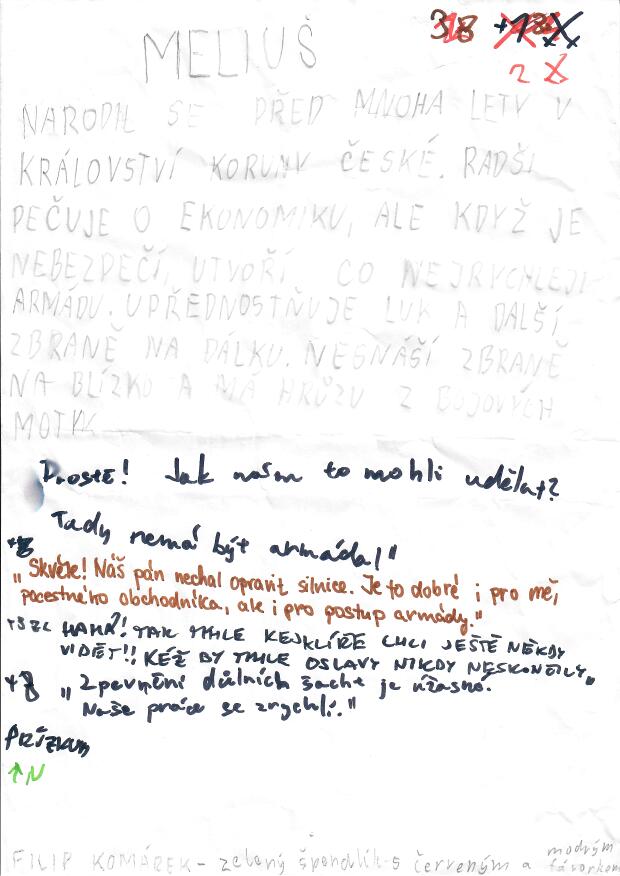 MELIUŠ
38
2
NARODIL SE PŘED MNOHA LETY V
KRÁLOVSTVÍ KORUNY ČESKÉ. RADŠI
PEČUJE O EKONOMIKU, ALE KDYŽ JE
NEBEZPEČÍ, UTVOŘÍ CO NEJRYCHLEJI
ARMÁDU. UPŘEDNOSTŇUJE LUK A DALŠÍ
ZBRANĚ NA DÁLKU. NESNÁŠÍ ZBRANĚ
NA BLÍZKO A MÁ HRŮZU Z BOJOVÝCH
MOTYK
Prostě! Jak nám to mohli udělat?
Tady nemá být armáda!"
"Skvěle! Náš pán nechal opravit silnice. Je to dobré i pro mě,
pocestného obchodníka, ale i pro postup armády."
HAHÁ! TAK TYHLE KEJKLÍŘE CHCI JEŠTĚ NĚKDY
VIDĚT!! KÉŽ BY TYHLE OSLAVY NIKDY NESKONČILY"
+8 "Zpevnění důlních šachet je úžasné.
Naše práce se zrychlí."
PRŮZKUM
↑N
FILIP KOMÁREK - zelený špendlík s červeným a modrým
fáborkem